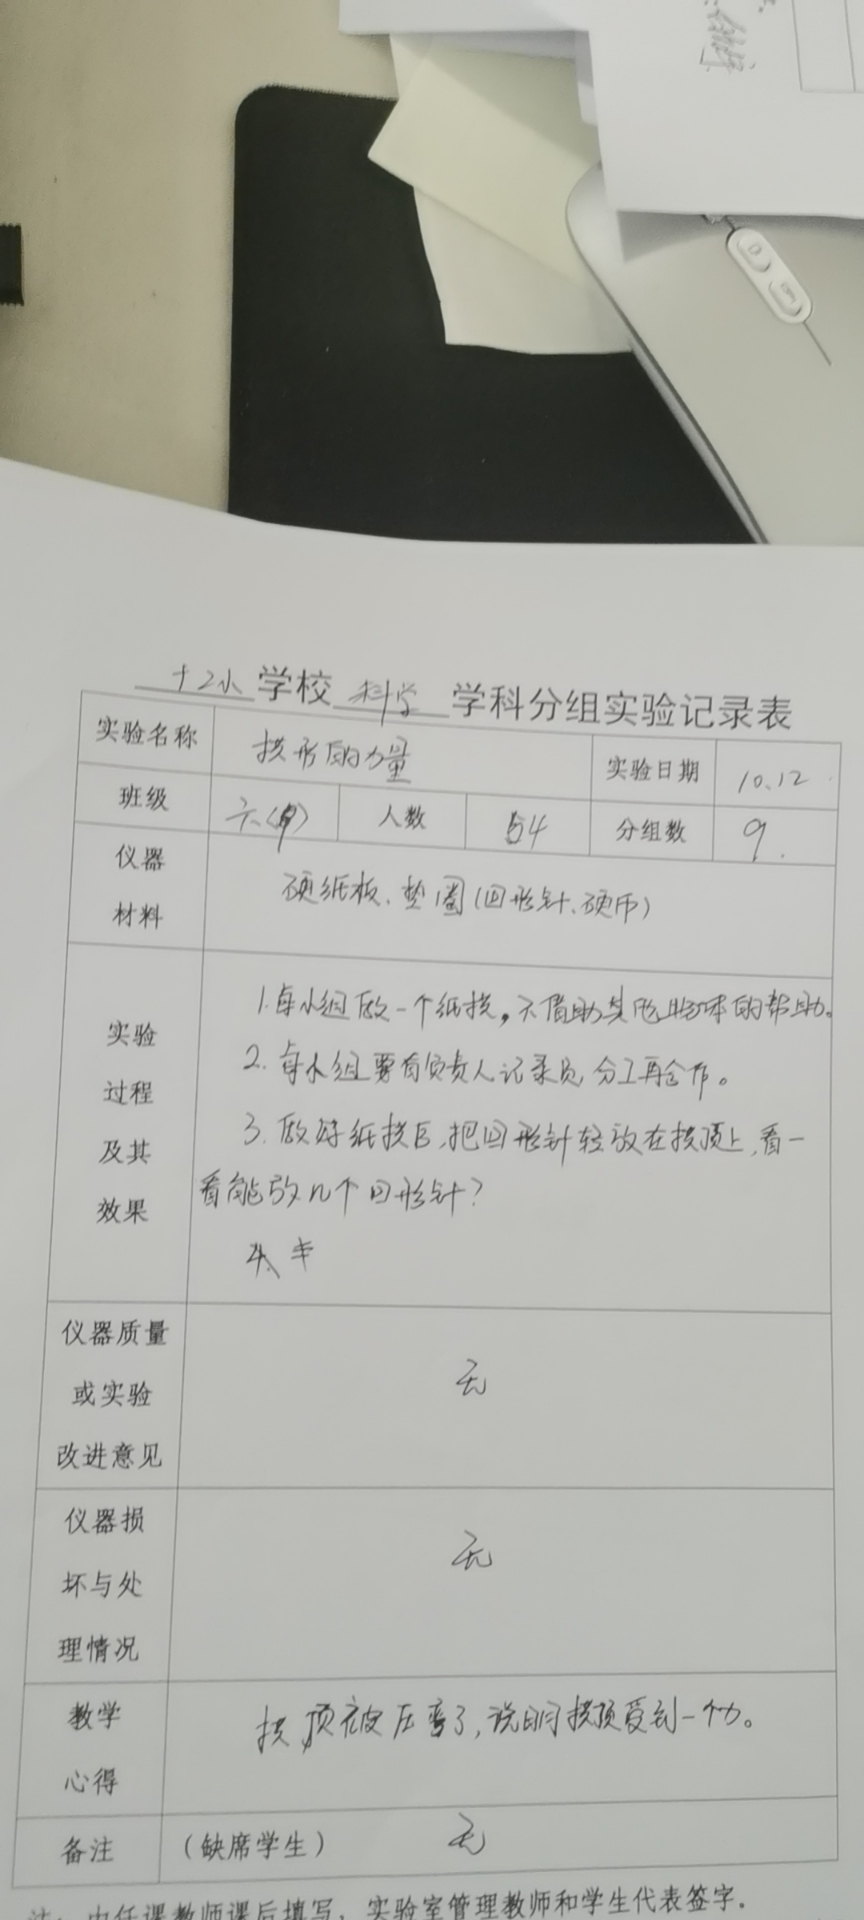 十二小学校 科学 学科分组实验记录表
实验名称 拱形的力量 实验日期 10.12
班级 六 人数 54 分组数 9.
仪器
材料
硬纸板、垫圈(回形针、硬币)
实验
过程
及其
效果
1.每小组做一个纸拱,不借助其他物体的帮助。
2.每小组要有负责人记录员,分工再合作。
3.做好纸拱后,把回形针轻放在拱顶上,看一
看能放几个回形针?
仪器质量
或实验
改进意见
无
仪器损
坏与处
理情况
无
教学
心得
拱顶被压弯了,说明拱顶受到一个力。
备注 (缺席学生) 无
注:由任课教师课后填写,实验室管理教师和学生代表签字.